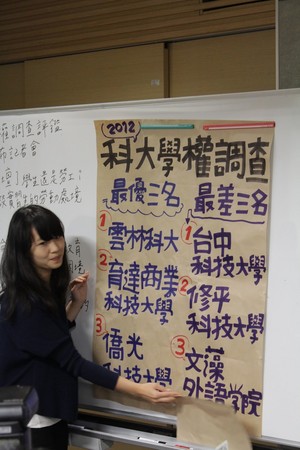 2012
科大學權調查
最優三名
1 雲林科大
2 育達商業
科技大學
3 僑光
科技大學
最差三名
1 台中
科技大學
2 修平
科技大學
3 文藻
外語學院
調查評鑑
記者會
學生還是勞工!
實習生的勞動處境